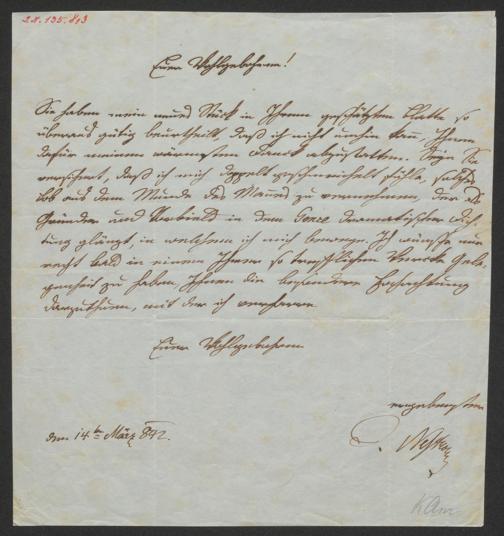 I.N. 135.813
Euer Wohlgebohren!
Sie haben mein neues Stück in Ihrem geschätzten Blatte so
überaus gütig beurtheilt daß ich nicht umhin kann, Ihnen
dafür meinen wärmsten Dank abzustatten. Seyn Sie
versichert, daß ich mich doppelt geschmeichelt fühle, selbes
Lob aus dem Munde des Mannes zu vernehmen, der als
Gründer und Vorbild in dem Genre dramatischer Dich-
tung glänzt, in welchem ich mich bewege. Ich wünsche nur
recht bald in einem Ihrer so trefflichen Gele-
genheit zu haben, Ihnen die besondere Hochachtung
darzuthun, mit der ich verharre
Euer Wohlgebohren
ergebenster
den 14ten März 842.
J. Nestroy